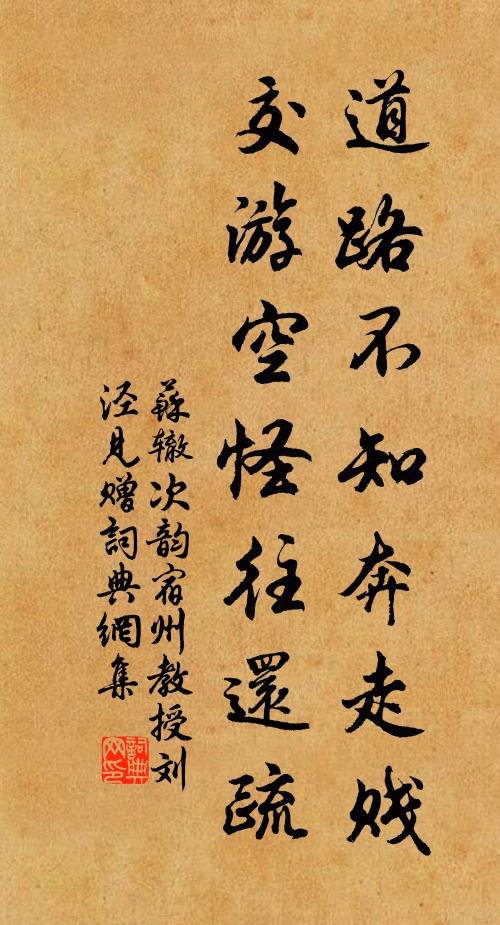 道路不知奔走贱
交游空怪往還疏
蘇辙次韵宿州教授刘
泾见赠詞典網集
詞典
网印